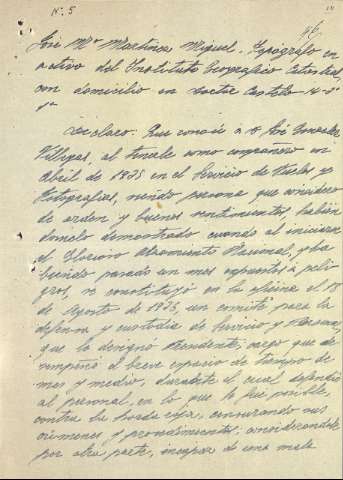 Nº 5
José Mª Martínez Miguel. Topógrafo en
activo del Instituto Geográfico Catastral,
con domicilio en Doctor Castelo 14-3º
Declaro: Que conocí a D. José González
Villegas, al tenerle como compañero en
Abril de 1935 en el Servicio de Vuelos y
Fotografías, siendo persona que considero
de orden y buenos sentimientos, habién
domelo demostrado cuando al iniciarse
el Glorioso Alzamiento Nacional, y ha
biendo pasado un mes expuestos a peli
gros, se constituyó en la oficina el 18
de Agosto de 1936, un comité para la
defensa y custodia de Servicio y Personal,
que le designó Presidente; cargo que de
sempeñó el breve espacio de tiempo de
mes y medio, durante el cual defendió
al personal, en lo que le fue posible,
contra la horda roja, censurando sus
crímenes y procedimientos; considerándole
por otra parte, incapaz de una mala